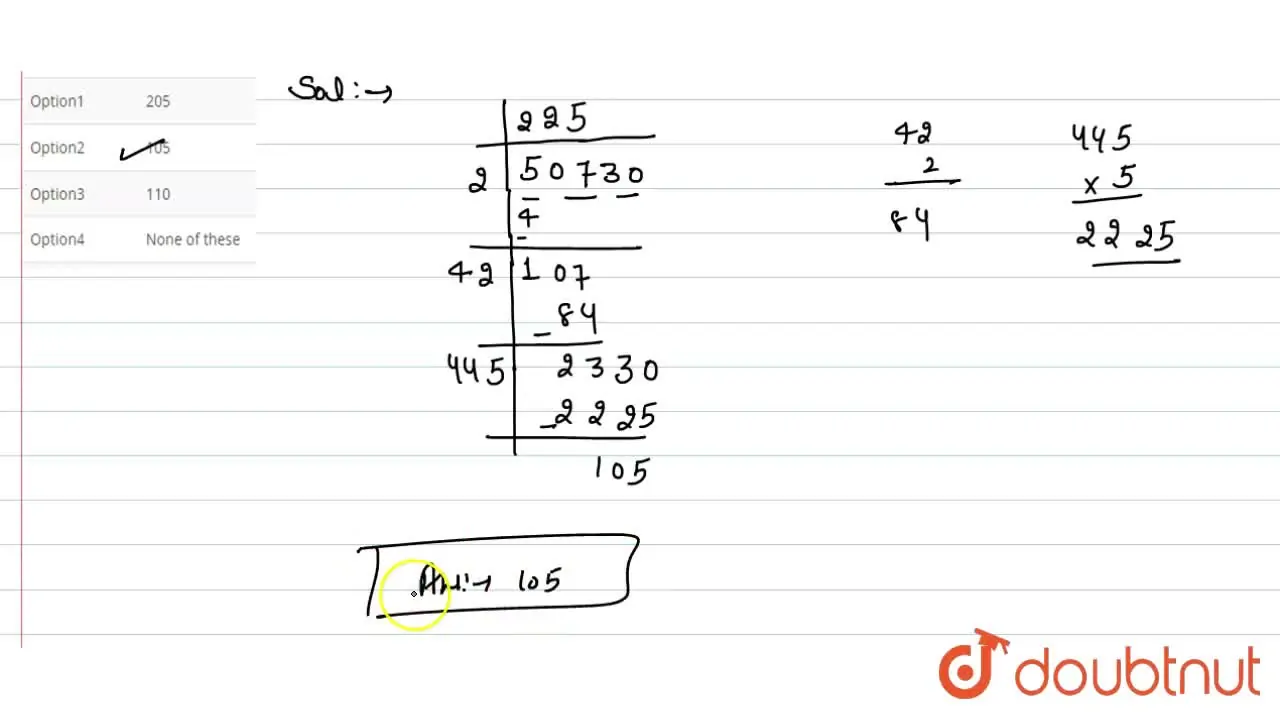 Option1 205
Option2 105
Option3 110
Option4 None of these
Sol:→
225
2 50730
4
42 107
-84
445 2330
-2225
105
42
2
84
445
x 5
2225
Ans:→ 105
doubtnut